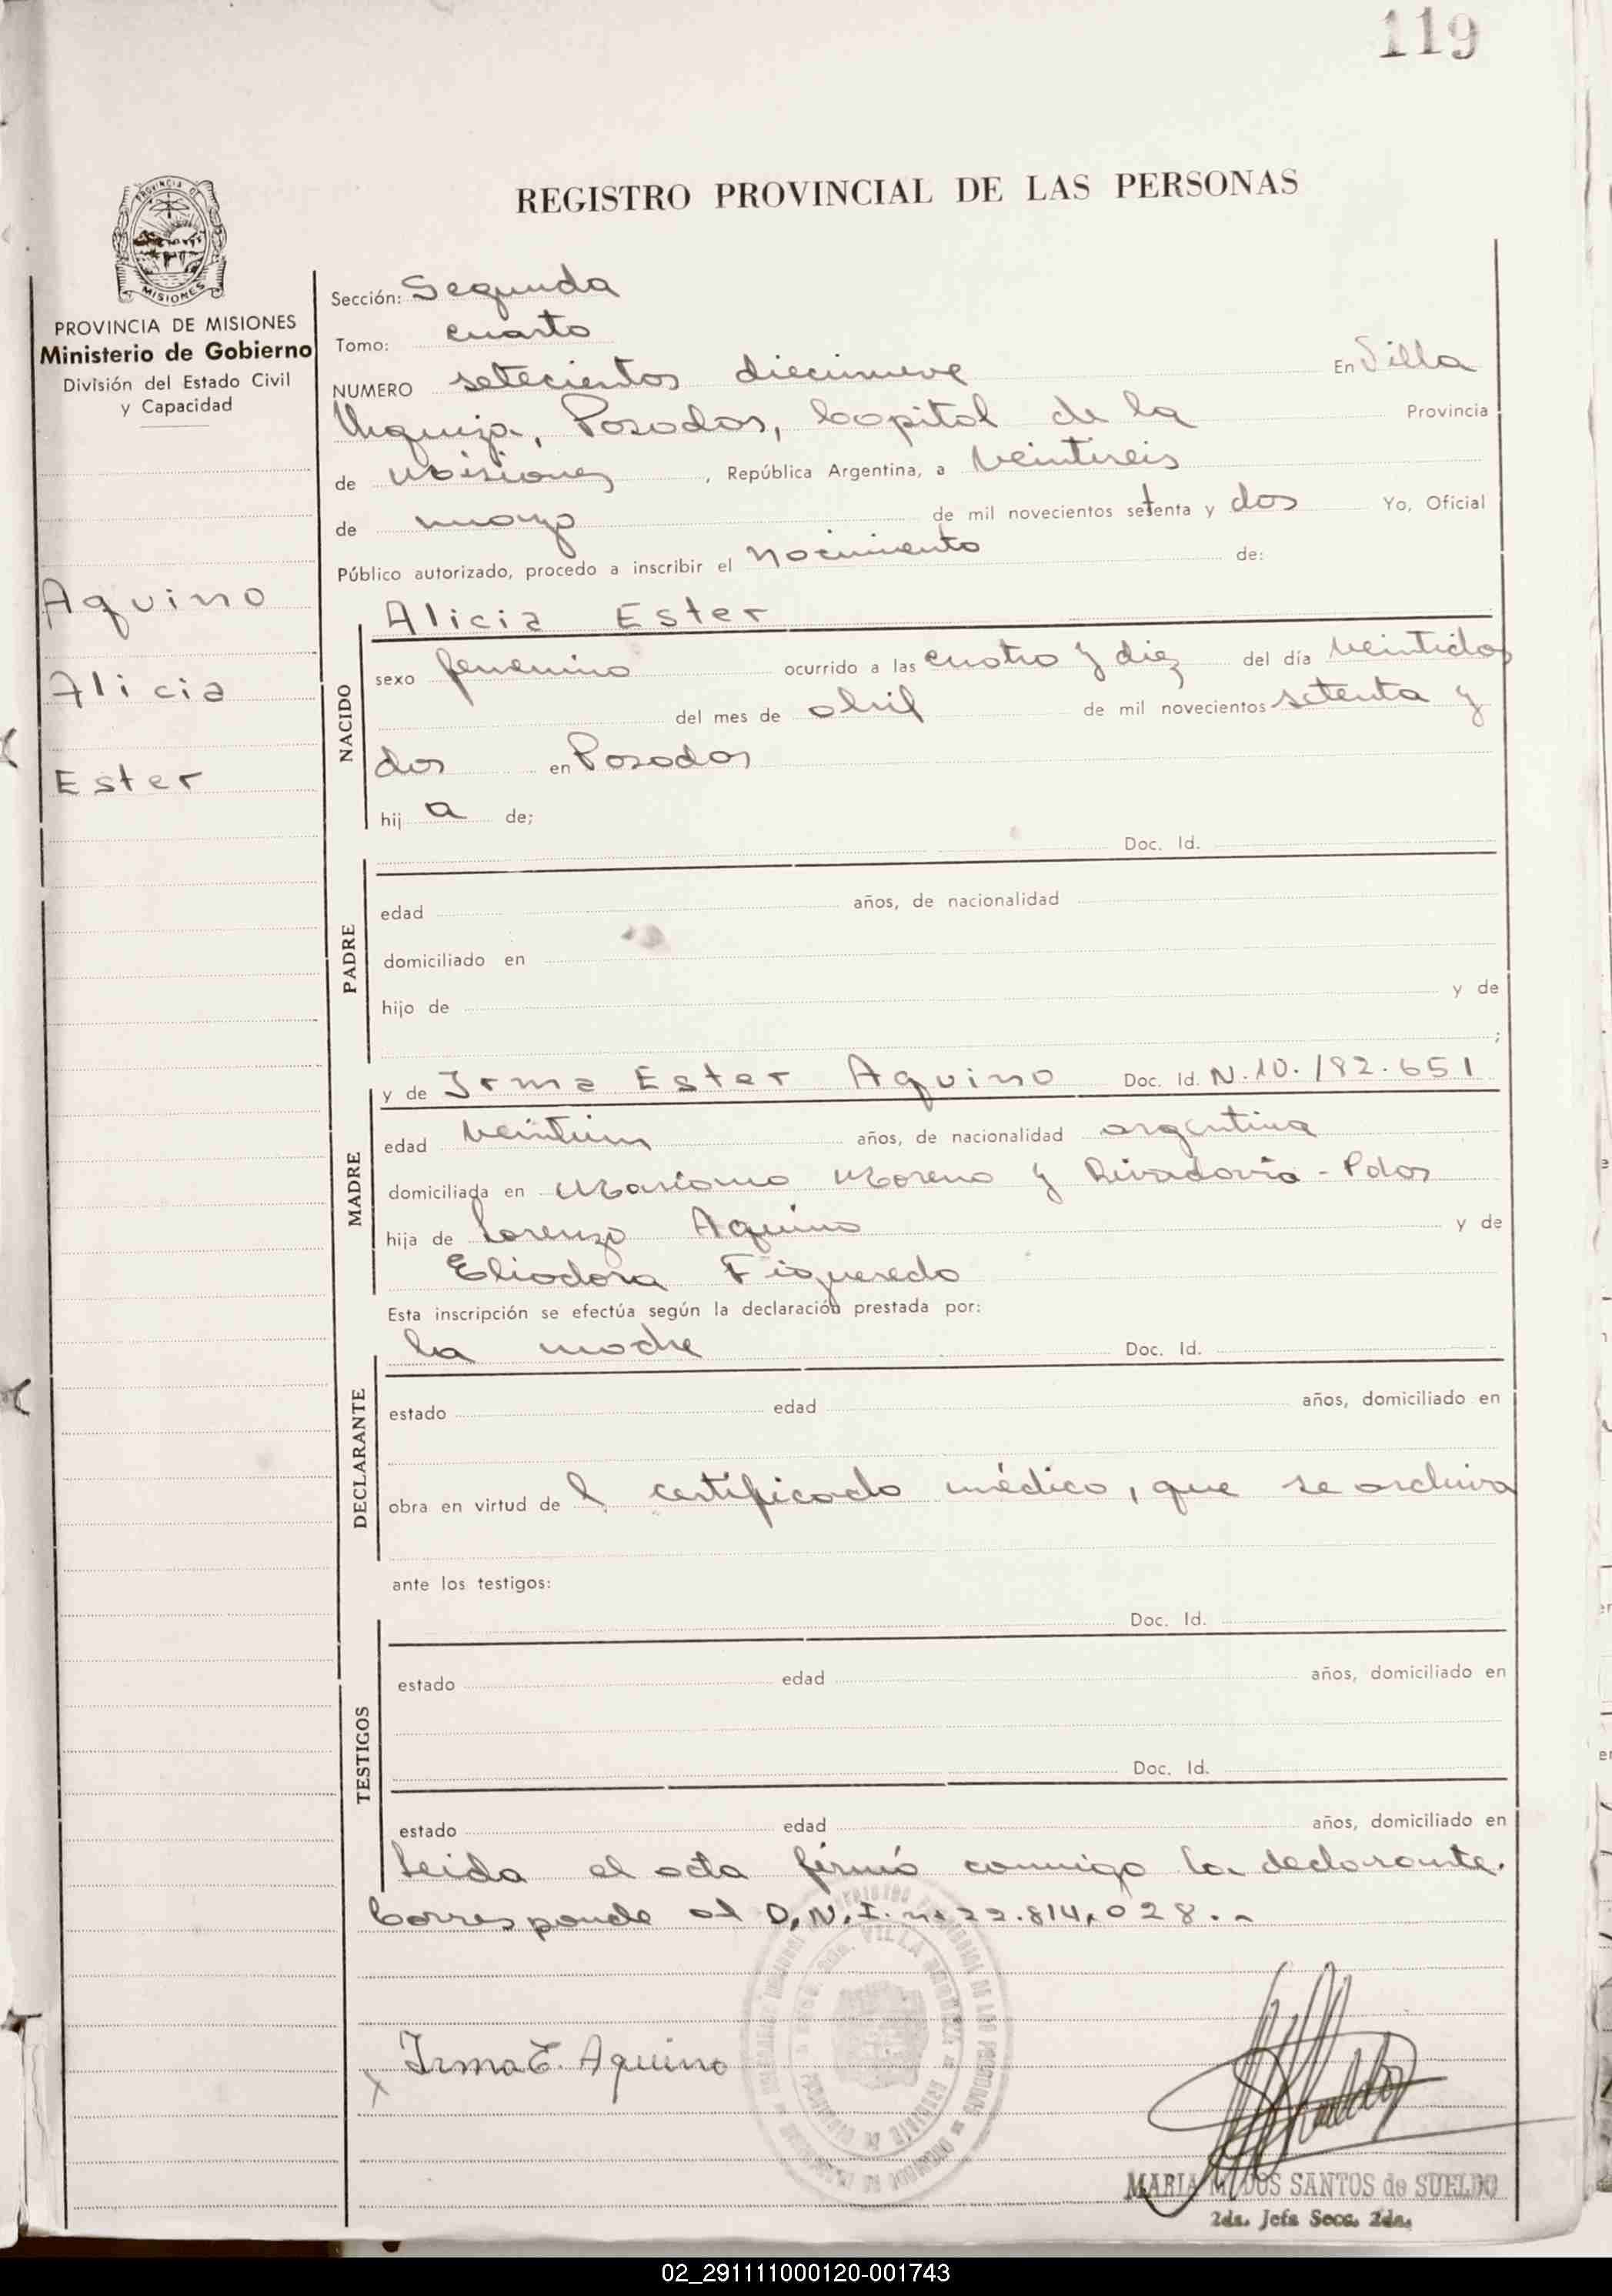 119
REGISTRO PROVINCIAL DE LAS PERSONAS
PROVINCIA DE MISIONES
MISIONES
PROVINCIA DE MISIONES
Ministerio de Gobierno
División del Estado Civil
y Capacidad
Aquino
Alicia
Ester
Sección: Segunda
Tomo: cuarto
NUMERO setecientos diecinueve En Villa
Urquiza, Posadas, Capital de la Provincia
de Misiones, República Argentina, a veintiseis
de mayo de mil novecientos setenta y dos Yo, Oficial
Público autorizado, procedo a inscribir el nacimiento de:
Alicia Ester
NACIDO
sexo femenino ocurrido a las cuatro y diez del día veintidos
del mes de abril de mil novecientos setenta y
dos en Posadas
hij a de;
Doc. Id.
PADRE
edad años, de nacionalidad
domiciliado en
hijo de y de
;
y de Irma Ester Aquino Doc. Id. N. 10.192.651
MADRE
edad veintiun años, de nacionalidad argentina
domiciliada en Mariano Moreno y Rivadavia - Pdas
hija de Lorenzo Aquino y de
Eliodora Figueredo
Esta inscripción se efectúa según la declaración prestada por:
la madre Doc. Id.
DECLARANTE
estado edad años, domiciliado en
obra en virtud de l certificado médico, que se archiva
ante los testigos:
Doc. Id.
TESTIGOS
estado edad años, domiciliado en
Doc. Id.
estado edad años, domiciliado en
Leida el acta firmó conmigo la declarante.
Corresponde al D.N.I. nº 22.814.028.-
Irma E. Aquino
MARIA M. DOS SANTOS de SUELDO
2da. Jefa Secc. 2da.
02_291111000120-001743